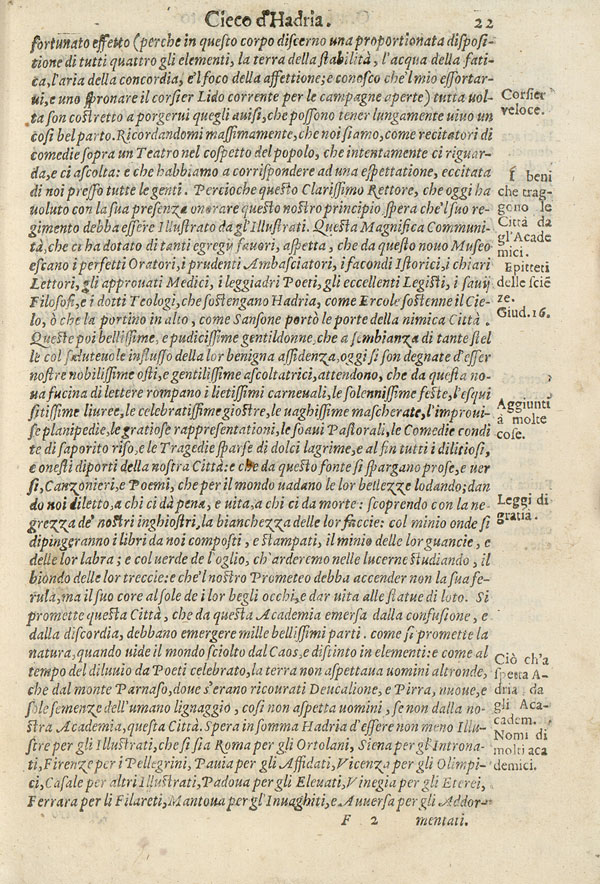 Cieco d'Hadria. 22
fortunato effetto (perche in questo corpo discerno una proportionata disposi-
tione di tutti quattro gli elementi, la terra della stabilità, l'acqua della fati-
ca, l'aria della concordia, e'l foco della affettione; e conosco che'l mio essortar-
ui, e uno spronare il corsier Lido corrente per le campagne aperte) tutta uol-
ta son costretto a porgerui quegli auisi, che possono tener lungamente uiuo un
cosi bel parto. Ricordandomi massimamente, che noi siamo, come recitatori di
comedie sopra un Teatro nel cospetto del popolo, che intentamente ci riguar-
da, e ci ascolta: e che habbiamo a corrispondere ad una espettatione, eccitata
di noi presso tutte le genti. Percioche questo Clarissimo Rettore, che oggi ha
uoluto con la sua presenza onorare questo nostro principio, spera che'l suo re-
gimento debba essere Illustrato da gl'Illustrati. Questa Magnifica Communi-
tà, che ci ha dotato di tanti egregij fauori, aspetta, che da questo nouo Museo
escano i perfetti Oratori, i prudenti Ambasciatori, i facondi Istorici, i chiari
Lettori, gli approuati Medici, i leggiadri Poeti, gli eccellenti Legisti, i sauij
Filosofi, e i dotti Teologi, che sostengano Hadria, come Ercole sostenne il Cie-
lo, ò che la portino in alto, come Sansone portò le porte della nimica Città.
Queste poi bellissime, e pudicissime gentildonne, che a sembianza di tante stel
le col salutevole influsso della lor benigna assidenza, oggi si son degnate d'esser
nostre nobilissime osti, e gentilissime ascoltatrici, attendono, che da questa no-
ua fucina di lettere rompano i lietissimi carneuali, le solennissime feste, l'esqui
sitissime liuree, le celebratissime giostre, le uaghissime mascherate, l'improui-
se planipedie, le gratiose rappresentationi, le soaui Pastorali, le Comedie condi
te di saporito riso, e le Tragedie sparse di dolci lagrime, e al fin tutti i dilitiosi,
e onesti diporti della nostra Città: e che da questo fonte si spargano prose, e uer
si, Canzonieri, e Poemi, che per il mondo uadano le lor bellezze lodando; dan
do noi diletto, a chi ci dà pena, e uita, a chi ci da morte: scoprendo con la ne-
grezza de' nostri inghiostri, la bianchezza delle lor faccie: col minio onde si
dipingeranno i libri da noi composti, e stampati, il minio delle lor guancie, e
delle lor labra; e col uerde de l'oglio, ch'arderemo nelle lucerne studiando, il
biondo delle lor treccie: e che'l nostro Prometeo debba accender non la sua fe-
rula, ma il suo core al sole de i lor begli occhi, e dar uita alle statue di loto. Si
promette questa Città, che da questa Academia emersa dalla confusione, e
dalla discordia, debbano emergere mille bellissimi parti. come si promette la
natura, quando uide il mondo sciolto dal Caos, e distinto in elementi: e come al
tempo del diluuio da Poeti celebrato, la terra non aspettaua uomini altronde,
che dal monte Parnaso, doue s'erano ricourati Deucalione, e Pirra, nuoue, e
sole semenze dell'umano lignaggio, cosi non aspetta uomini, se non dalla no-
stra Academia, questa Città. Spera in somma Hadria d'essere non meno Illu-
stre per gli Illustrati, che si sia Roma per gli Ortolani, Siena per gl'Introna-
ti, Firenze per i Pellegrini, Pauia per gli Affidati, Vicenza per gli Olimpi-
ci, Casale per altri Illustrati, Padoua per gli Eleuati, Vinegia per gli Eterei,
Ferrara per li Filareti, Mantoua per gl'Inuaghiti, e Auuersa per gli Addor-
F 2 mentati.
Corsier
veloce.
I beni
che trag-
gono le
Città da
gl'Acade
mici.
Epitteti
delle sciē
ze.
Giud. 16.
Aggiunti
à molte
cose.
Leggi di
gratia.
Ciò ch'a
spetta A-
dria da
gli Aca-
cadem.
Nomi di
molti aca
demici.